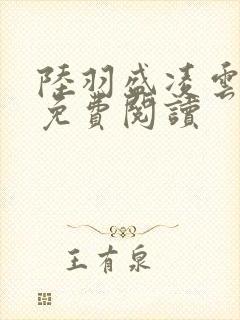 陸羽盛凌雲
免費閱讀
王有泉